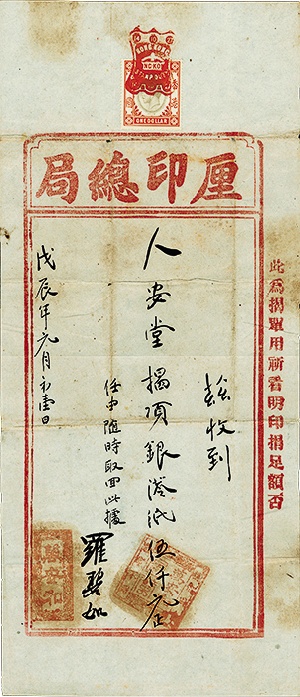 HONG KONG
STAMP DUTY
ONE DOLLAR
局總印厘
此爲揭單用祈看明印捐足額否
茲收到
人安堂揭項銀港紙伍仟元正
任由隨時取回此據
羅
戊辰年元月初壹日